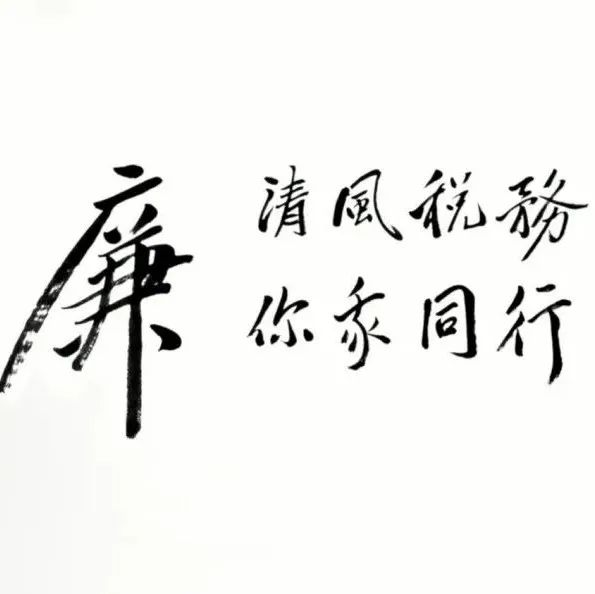 廉
清風税務
你我同行